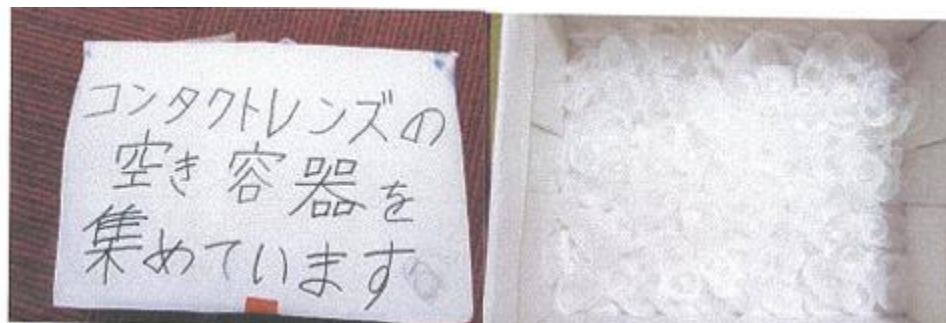 コンタクトレンズの
空き容器を
集めています